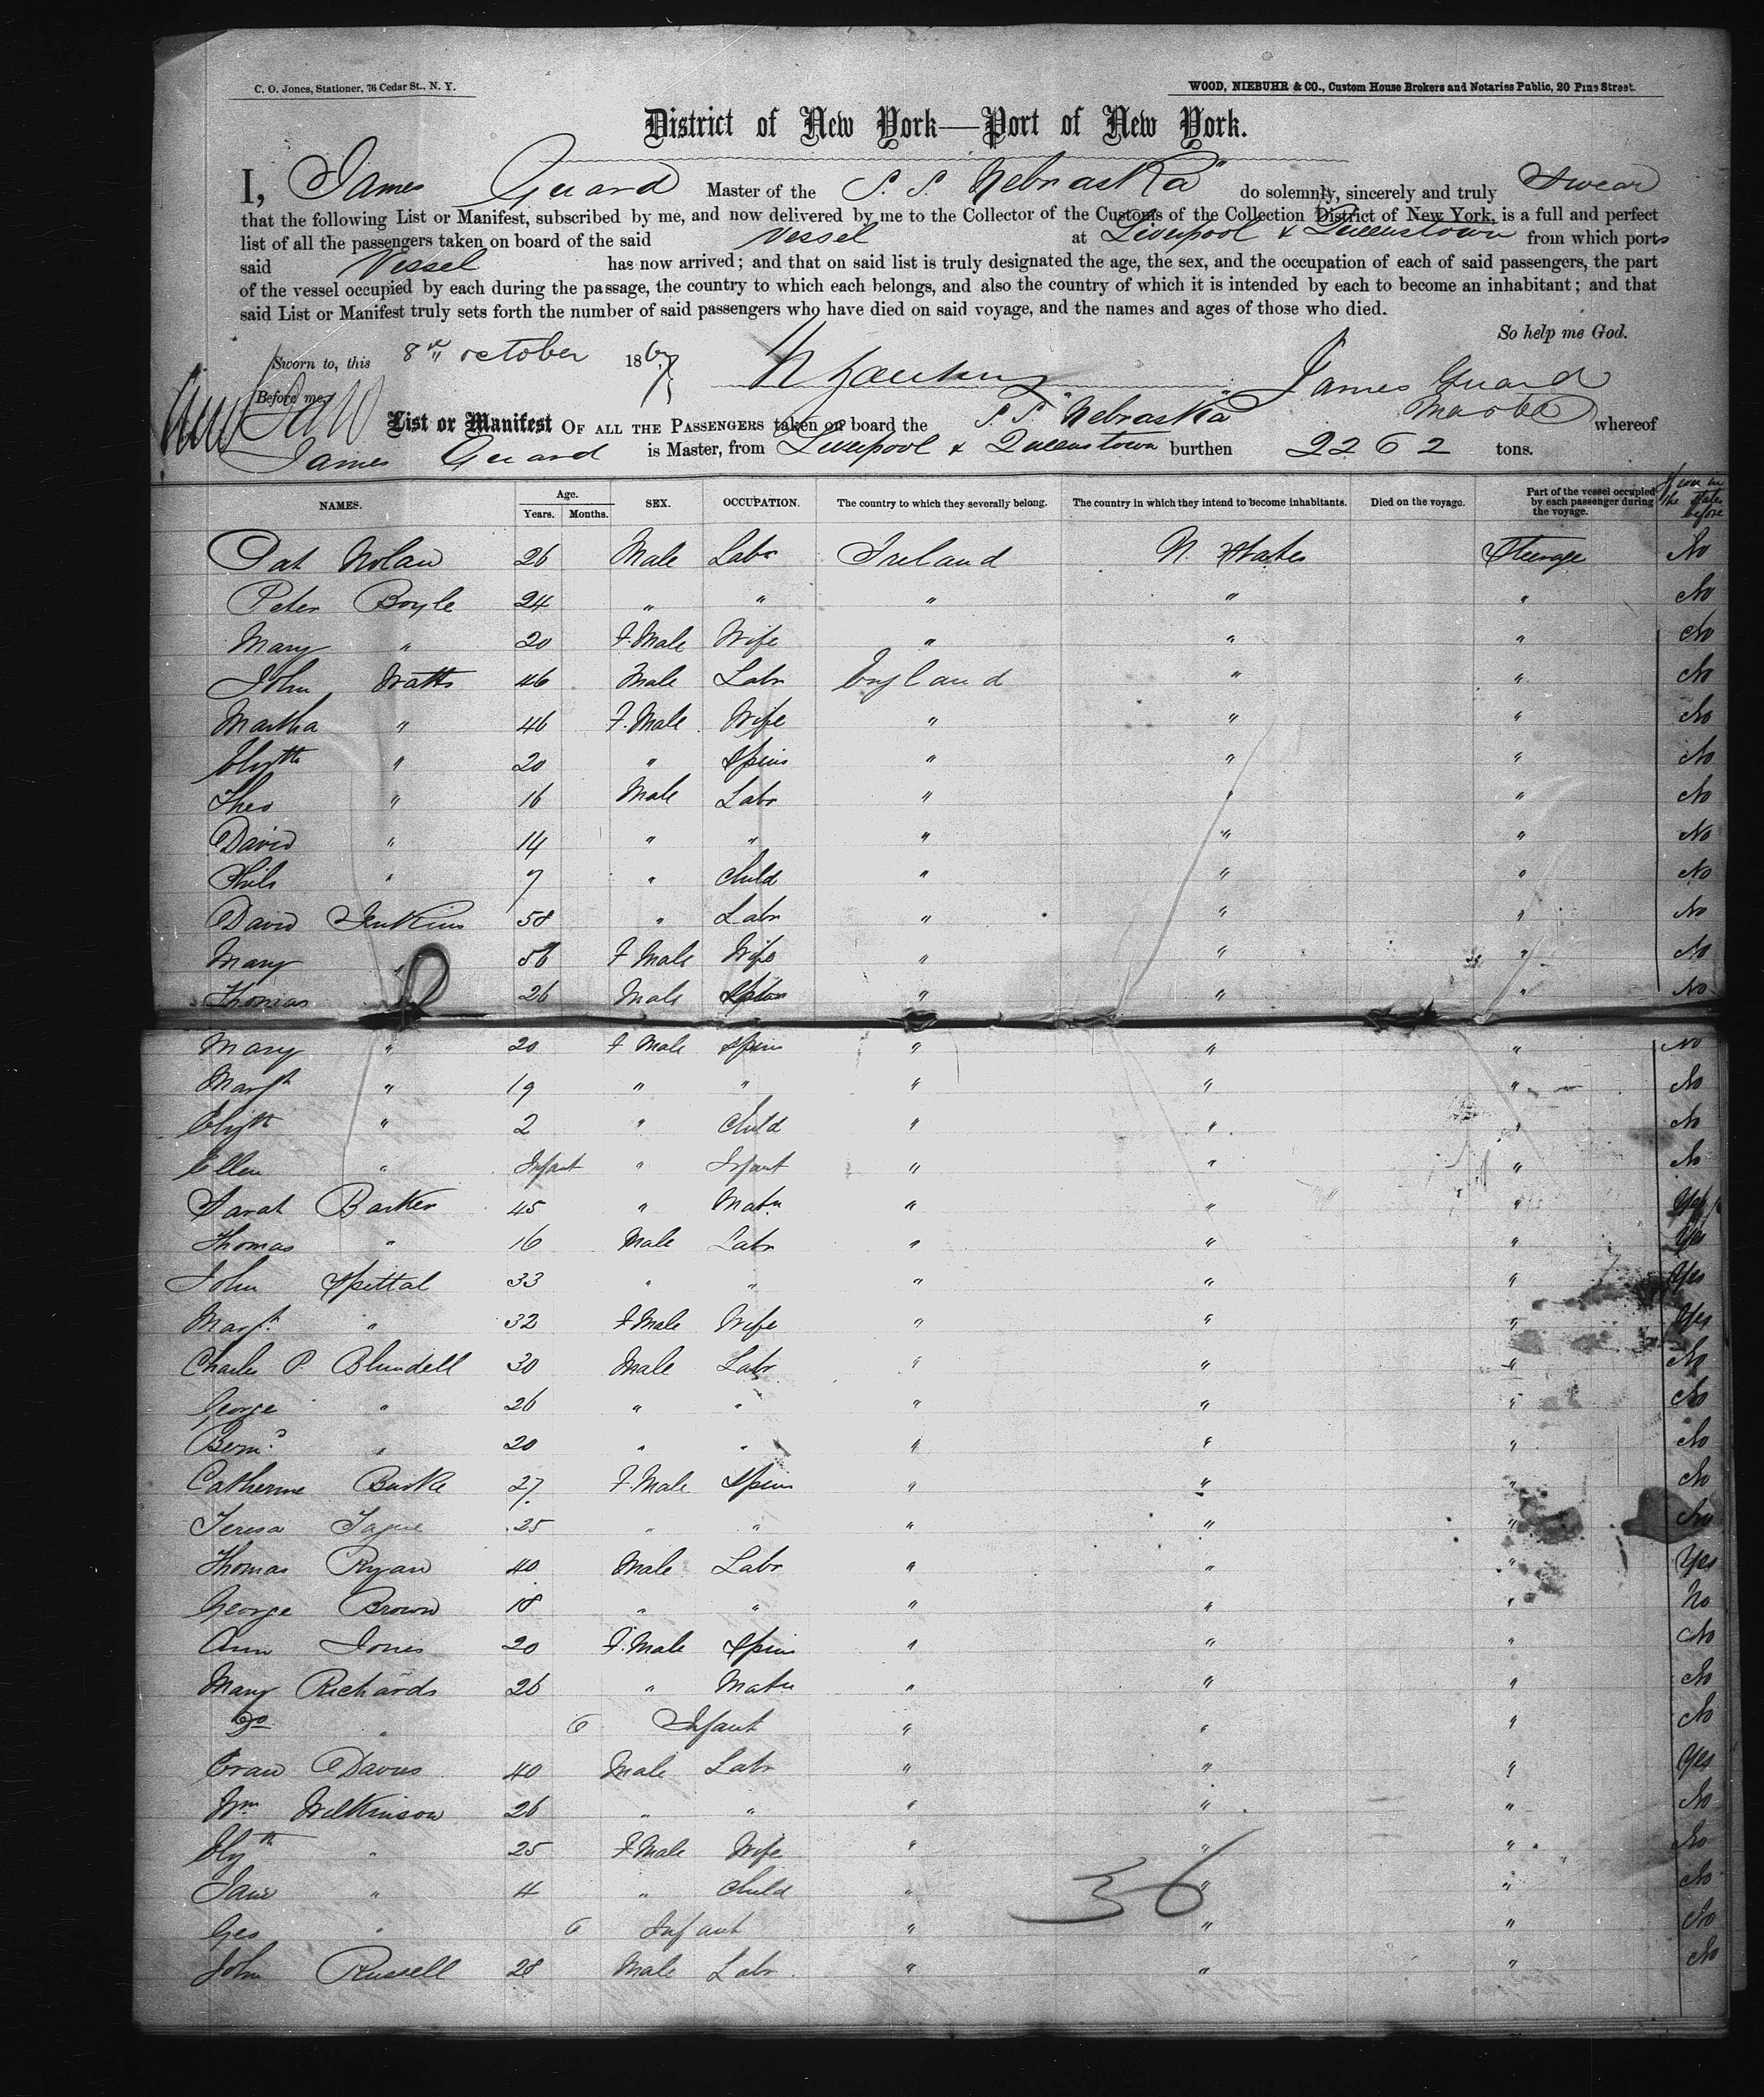 C. O. Jones, Stationer, 76 Cedar St., N. Y.
WOOD, NIEBUHR & CO., Custom House Brokers and Notaries Public, 20 Pine Street.
District of New York—Port of New York.
I, James Guard Master of the S. S. Nebraska" do solemnly, sincerely and truly Swear
that the following List or Manifest, subscribed by me, and now delivered by me to the Collector of the Customs of the Collection District of New York, is a full and perfect
list of all the passengers taken on board of the said Vessel at Liverpool & Queenstown from which ports
said Vessel has now arrived; and that on said list is truly designated the age, the sex, and the occupation of each of said passengers, the part
of the vessel occupied by each during the passage, the country to which each belongs, and also the country of which it is intended by each to become an inhabitant; and that
said List or Manifest truly sets forth the number of said passengers who have died on said voyage, and the names and ages of those who died.
So help me God.
Sworn to, this 8th October 1867
James Guard
Before me,
Master
List or Manifest OF ALL THE PASSENGERS taken on board the S. S. "Nebraska" whereof
James Guard is Master, from Liverpool & Queenstown burthen 2262 tons.
NAMES. Age. Years. Months. SEX. OCCUPATION. The country to which they severally belong. The country in which they intend to become inhabitants. Died on the voyage. Part of the vessel occupied by each passenger during the voyage. If ever in the States before
Pat Nolan 26 Male Labr Ireland U. States Steerage No
Peter Boyle 24 " " " " " No
Mary " 20 F. Male Wife " " " No
John Watts 46 Male Labr England " " No
Martha " 46 F. Male Wife " " " No
Elizth " 20 " Spins " " " No
Thos " 16 Male Labr " " " No
David " 14 " " " " " No
" 7 " Child " " " No
David Jenkins 58 " Labr " " " No
Mary " 56 F Male Wife " " " No
Thomas 26 Male " " " No
Mary " 20 F Male Spins " " " No
Margt " 19 " " " " " No
Elizth " 2 " Child " " " No
Ellen " Infant " Infant " " " No
Sarah Barker 45 " Matn " " " Yes
Thomas " 16 Male Labr " " " Yes
John Spittal 33 " " " " " Yes
Margt " 32 F Male Wife " " " Yes
Charles P. Blundell 30 Male Labr " " " No
George " 26 " " " " " No
" 20 " " " " " No
Catherine Burke 27 F. Male Spins " " " No
Teresa 25 " " " " " No
Thomas Ryan 40 Male Labr " " " Yes
George Brown 18 " " " " " No
Ann Jones 20 F. Male Spins " " " No
Mary Richards 26 " Matn " " " No
Do " 6 Infant " " " No
Evan Davies 40 Male Labr " " " Yes
Wm Wilkinson 26 " " " " " No
Elizth " 25 F Male Wife " " " No
Jane " 4 " Child " " " No
Geo " 6 Infant " " " No
John Russell 28 Male Labr " " " No
36